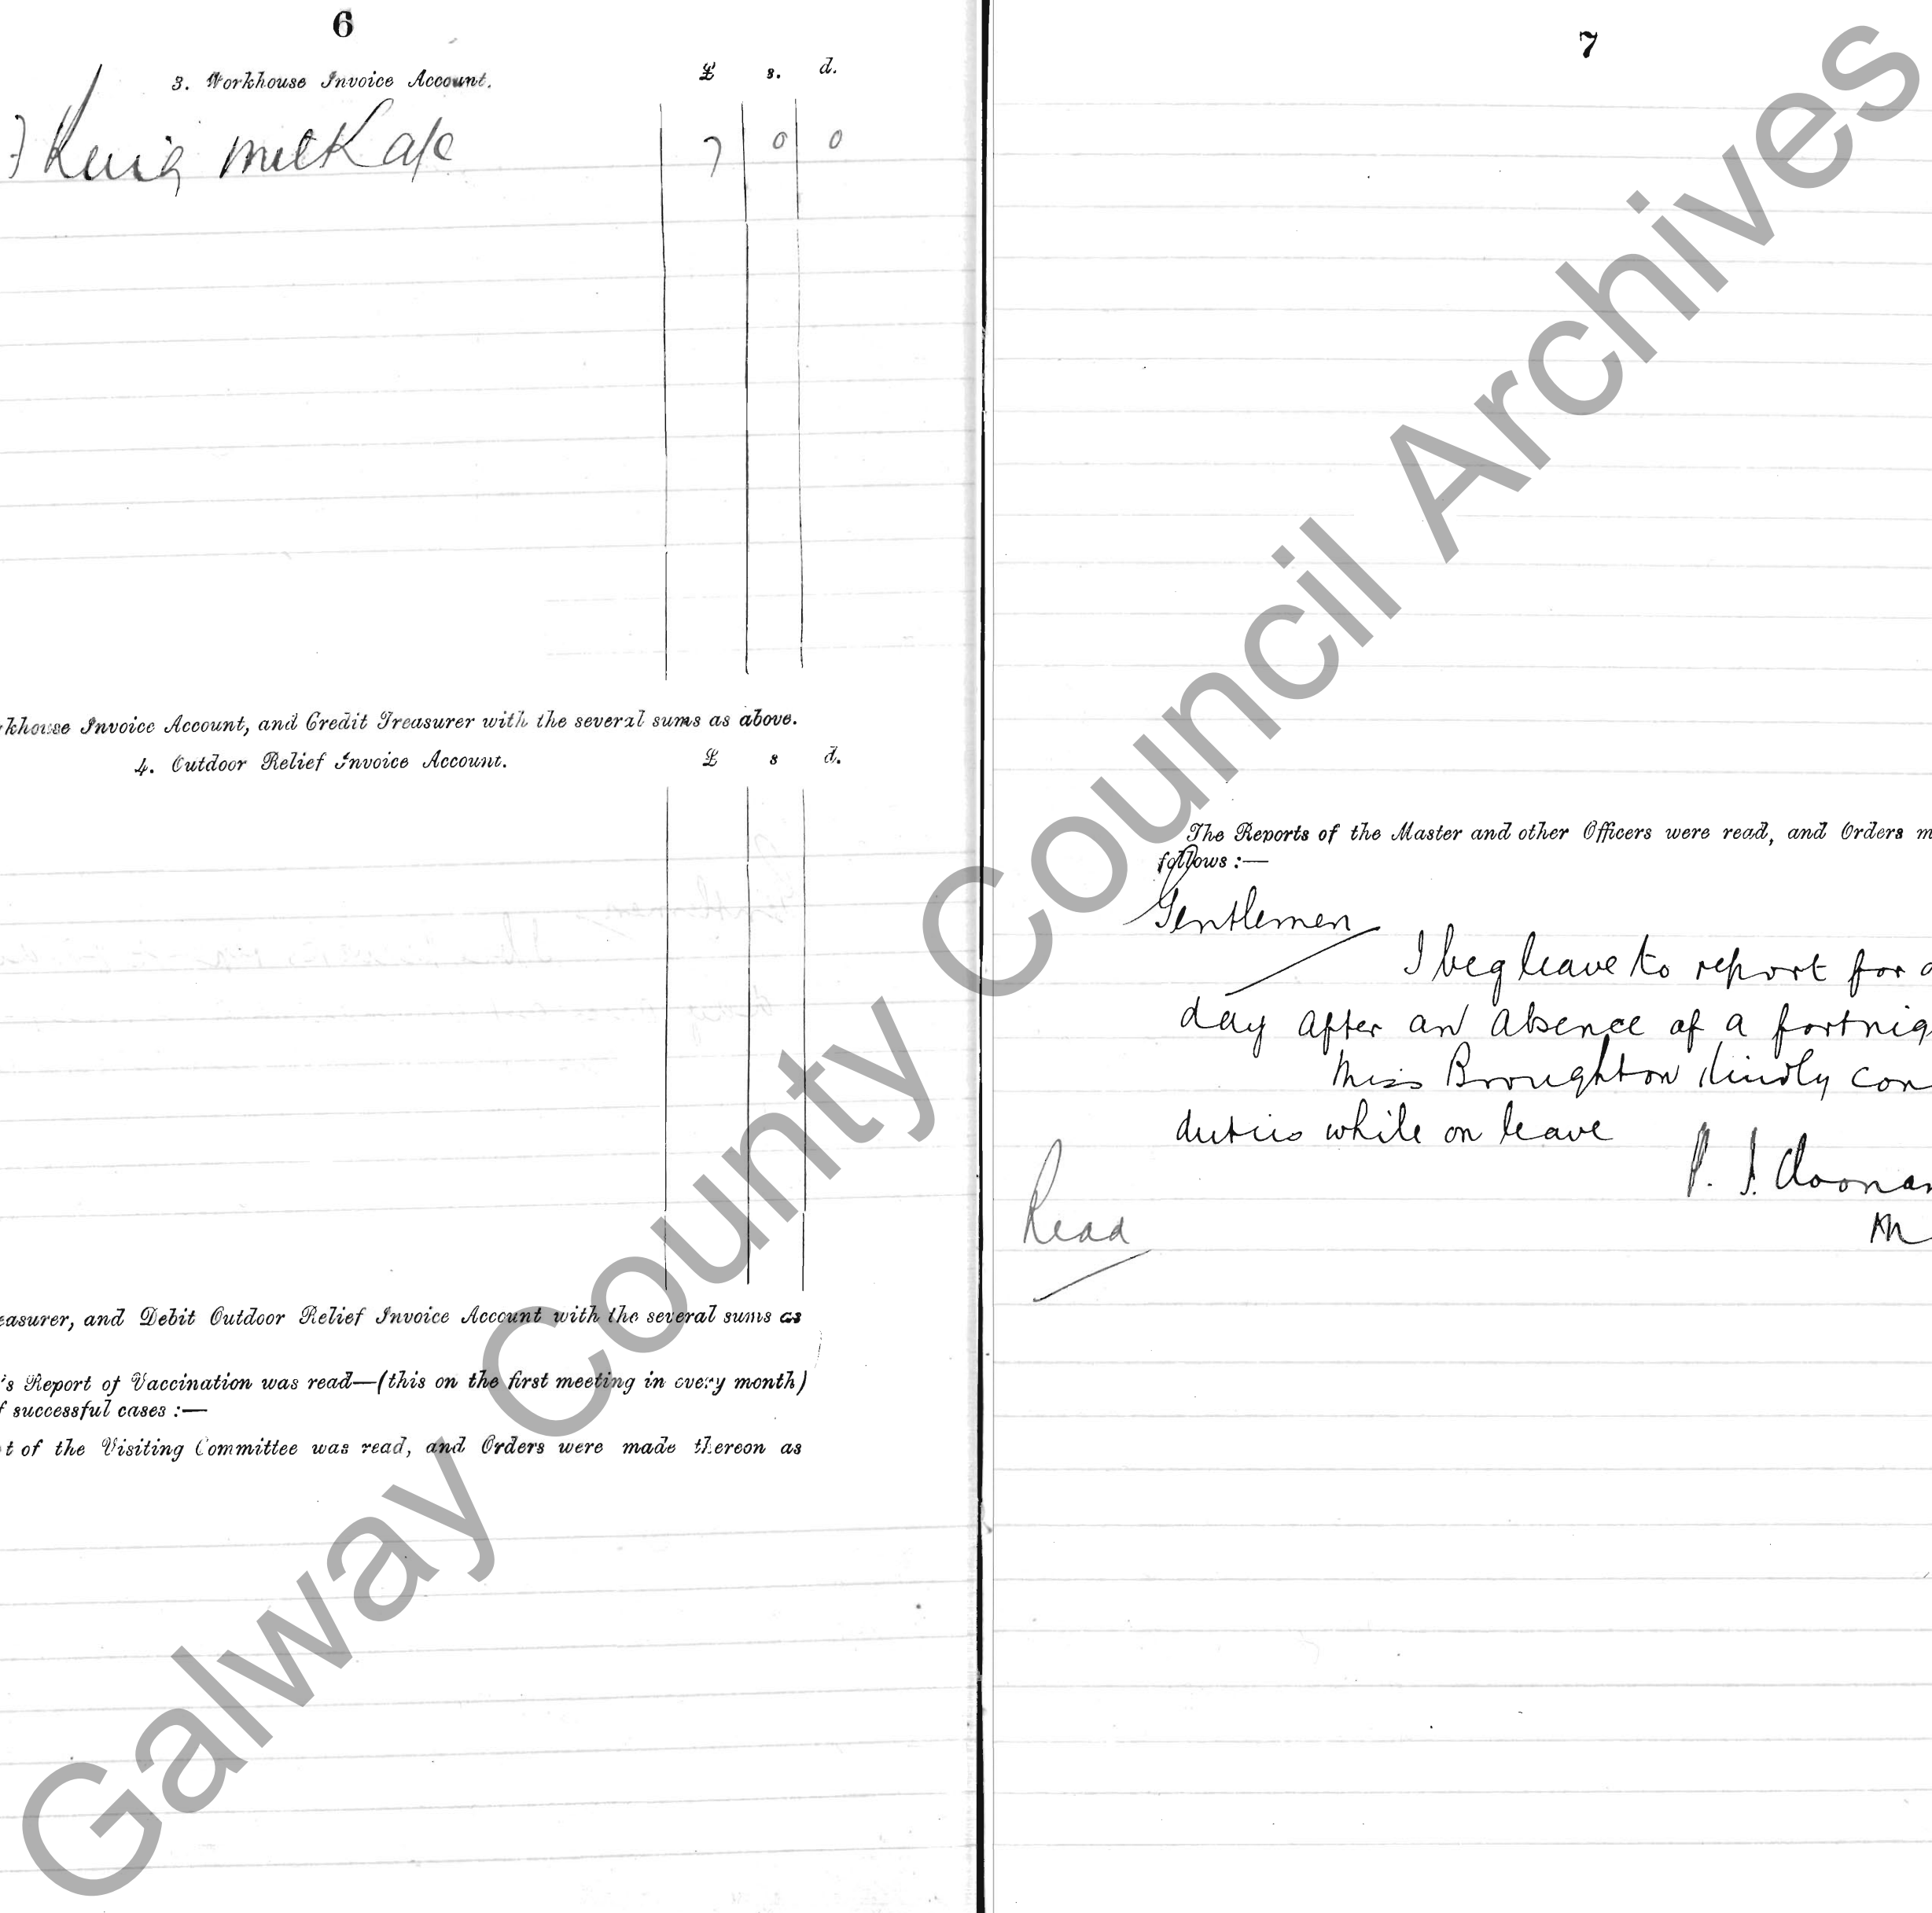 6
3. Workhouse Invoice Account. £ s. d.
milk a/c 7 0 0
khouse Invoice Account, and Credit Treasurer with the several sums as above.
4. Outdoor Relief Invoice Account. £ s d.
easurer, and Debit Outdoor Relief Invoice Account with the several sums as
's Report of Vaccination was read—(this on the first meeting in every month)
f successful cases :—
t of the Visiting Committee was read, and Orders were made thereon as
7
The Reports of the Master and other Officers were read, and Orders m
follows :—
Gentlemen
I beg leave to report for d
day after an absence of a fortnig
Miss Broughton kindly con
duties while on leave
P. J. Cloonan
Read
Galway County Council Archives